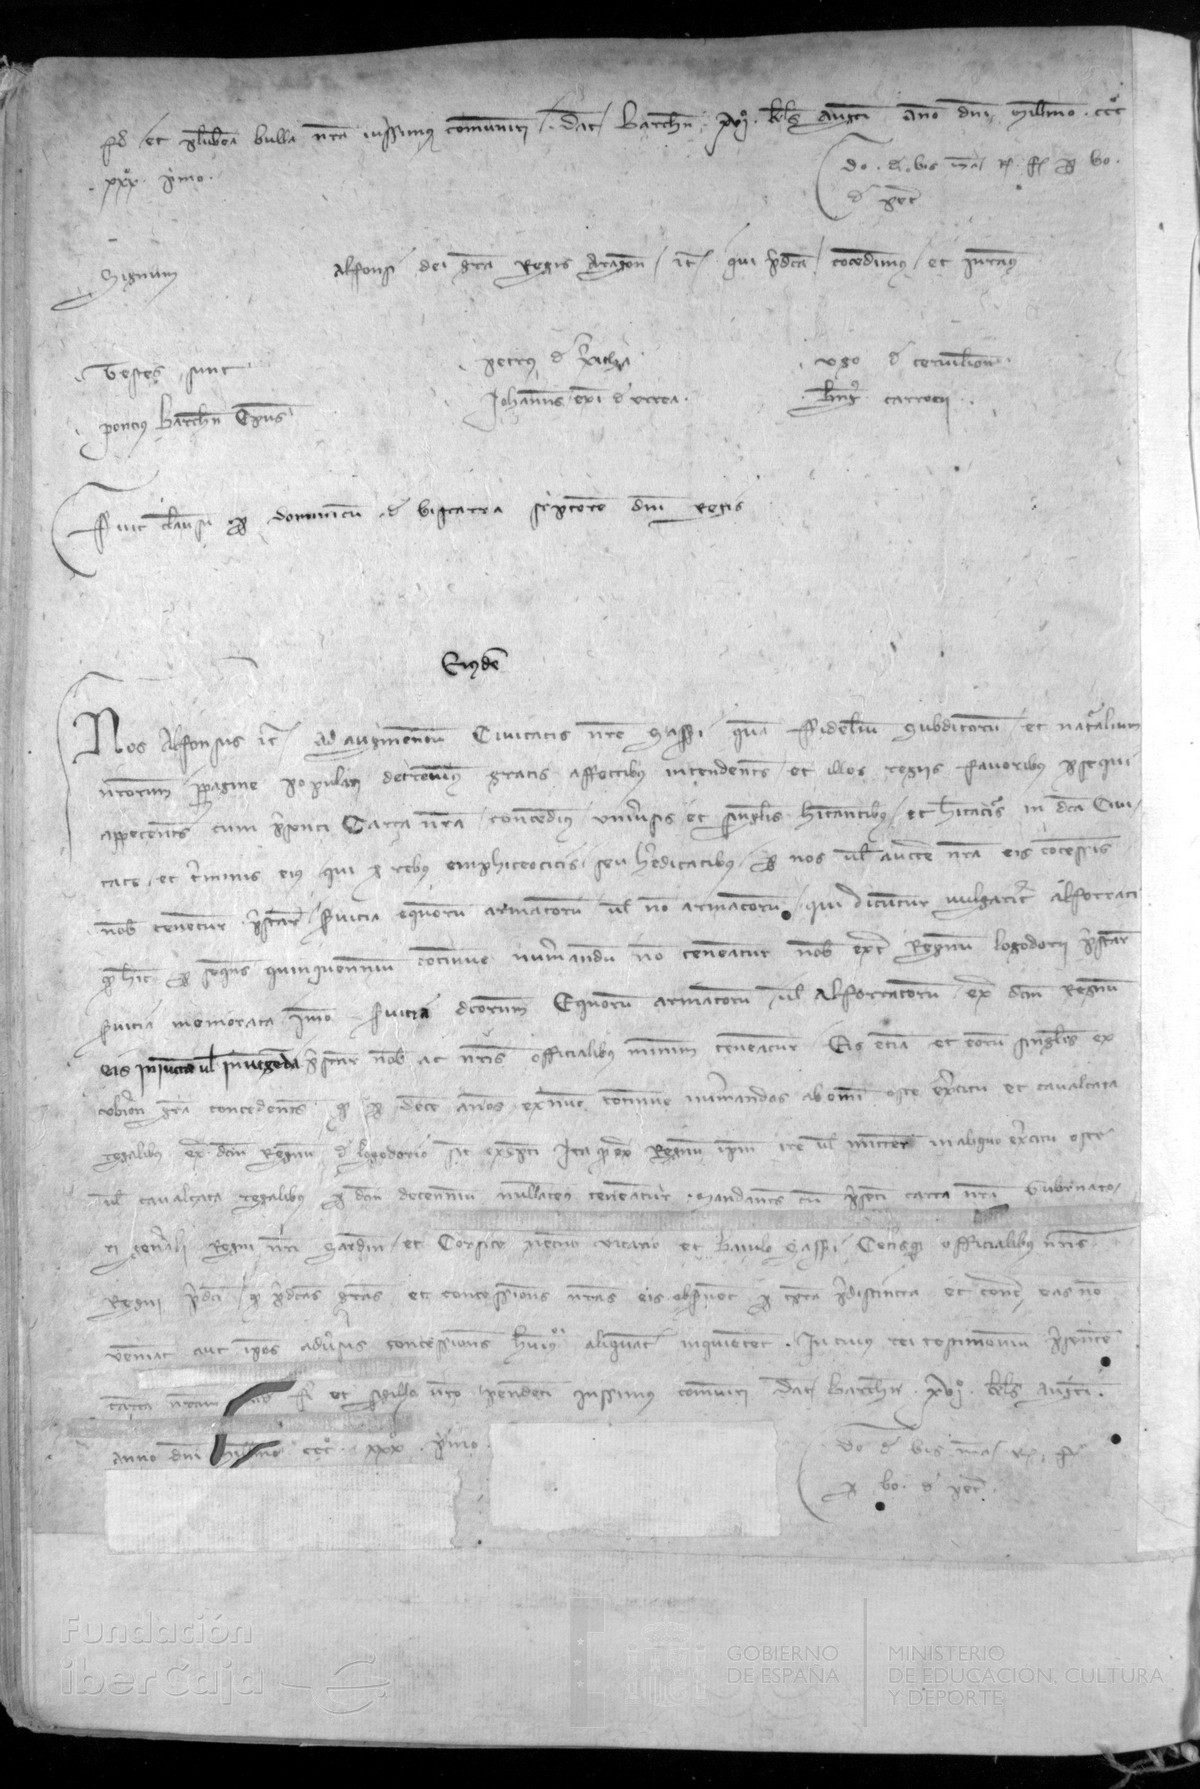 fieri et plumbea bulla nra iussimus comuniri. Dat Barchn xvi kls Augusti Anno dni Millmo ccc
xxx primo.
Do. de. bis
Signum Alfonsi dei gra Regis Aragon etc qui predca concedimus et iuramus
Testes sunt
Petrus de Xerica
Ugo de cervilione
Poncius Barchn Epus
Johannes exi durrea
Bng carrocii
Fuit clausum per dominicum de biscarra scriptorem dni Regis
Eiusdem
Nos Alfonsus etc ad augmentum Civitatis nre Sassi quam fidelium subditorum et naturalium
nrorum propagine populari decrevimus gratis affectibus intendentes et illos regiis favoribus prosequi
appetentes cum presenti Carta nra concedimus universis et singulis habitantibus et habitaturis in dca Civi
tate et terminis eius qui pro rebus emphiteoticis seu hereditatibus per nos vel auctte nra eis concessis
nob tenentur prestare servicia equorum armatorum vel non armatorum qui dicuntur vulgariter alforrati
quod hinc per sequens quinquennium continue numerandum non teneantur nob extra Regnum logodorii prestare
servicia memorata Imo servicia dcorum Equorum armatorum vel Alforratorum extra dcm Regnum
eis iniuncta vel iniungenda prestare nob ac nris officialibus minime teneantur Eis etiam et eorum singulis ex
uberiori gra concedentes quod per decem annos ex nunc continue numerandos ab omni oste exercitu et cavalcata
regalibus extra dcm Regnum de logodorio sint exempti Ita quod extra Regnum ipm ire vel mittere in aliquo exercitu oste
vel cavalcata regalibus per dcm decennium nullatenus teneantur. Mandantes cum presenti carta nra Gubernato
ri generali Regni nri Sardin et Corsice necnon vicario et Baiulo Sassi Ceterisque officialibus nris
Regni predci quod predcas gras et concessiones nras eis observent et contra eas non
veniant aut ipos adversus concessiones huiusmodi aliquatenus inquietent. In cuius rei testimonium presentem
cartam nram fieri et sigillo nro pendenti iussimus comuniri Dat Barchn xvi kls Augusti
anno dni Millmo ccc xxx primo.
Fundación
iberCaja
GOBIERNO
DE ESPAÑA
MINISTERIO
DE EDUCACIÓN, CULTURA
Y DEPORTE